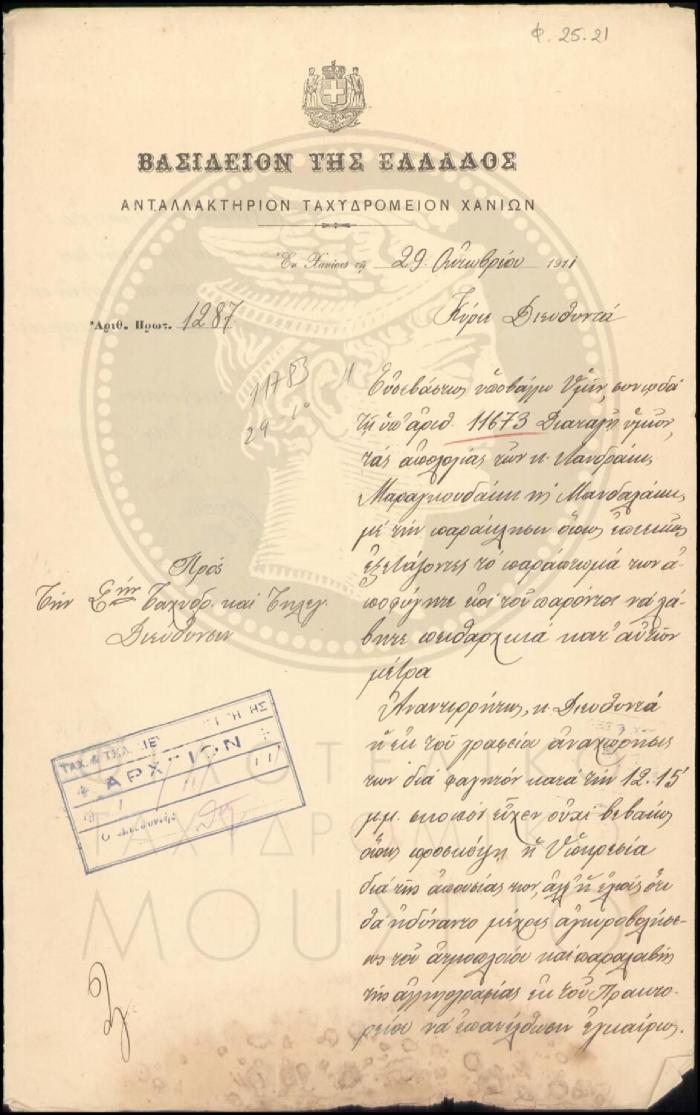 Φ. 25.21
ΒΑΣΙΛΕΙΟΝ ΤΗΣ ΕΛΛΑΔΟΣ
ΑΝΤΑΛΛΑΚΤΗΡΙΟΝ ΤΑΧΥΔΡΟΜΕΙΟΝ ΧΑΝΙΩΝ
Ἐν Χανίοις τῇ 29 Ὀκτωβρίου 1911
Ἀριθ. Πρωτ. 1287
Κύριε Διευθυντά
11783
29
Εὐσεβάστως ὑποβάλω Ὑμῖν, συνῳδά
τῇ ὑπ' ἀριθ. 11673 Διαταγῇ ὑμῶν,
τάς ἀπολογίας τῶν κ. Λανδράκη,
Μαραγκουδάκη κ Μανδαλάκη,
μέ τήν παράκλησιν ὅπως ἐπιεικῶς
ἐξετάζοντες τό παράπτωμά των ἀ-
ποφύγητε ἐπί τοῦ παρόντος νά λά-
βητε πειθαρχικά κατ' αὐτῶν
μέτρα
Πρός
Τήν Σ<sup>ήν</sup> Ταχυδρ. καί Τηλεγ.
Διεύθυνσιν
Ἀναντιρρήτως, κ. Διευθυντά
ἡ ἐκ τοῦ γραφείου ἀναχώρησις
των διά φαγητόν κατά τήν 12.15'
μμ. σκοπόν εἶχεν οὐχί βεβαίως
ὅπως προσκόψῃ ἡ Ὑπηρεσία
διά τῆς ἀπουσίας των, ἀλλ' ἡ ἐλπίς ὅτι
θά ἠδύναντο μέχρις ἀγκυροβολήσε-
ως τοῦ ἀτμοπλοίου καί παραλαβῆς
τῆς ἀλληλογραφίας ἐκ τοῦ Πρακτο-
ρείου νά ἐπανέλθωσιν ἐγκαίρως.
ΤΑΧ. & ΤΗΛ.
ΑΡΧΕΙΟΝ
ΦΙΛΟΤΕΛΙΚΟ
ΤΑΧΥΔΡΟΜΙΚΟ
ΜΟΥΣΕΙΟ